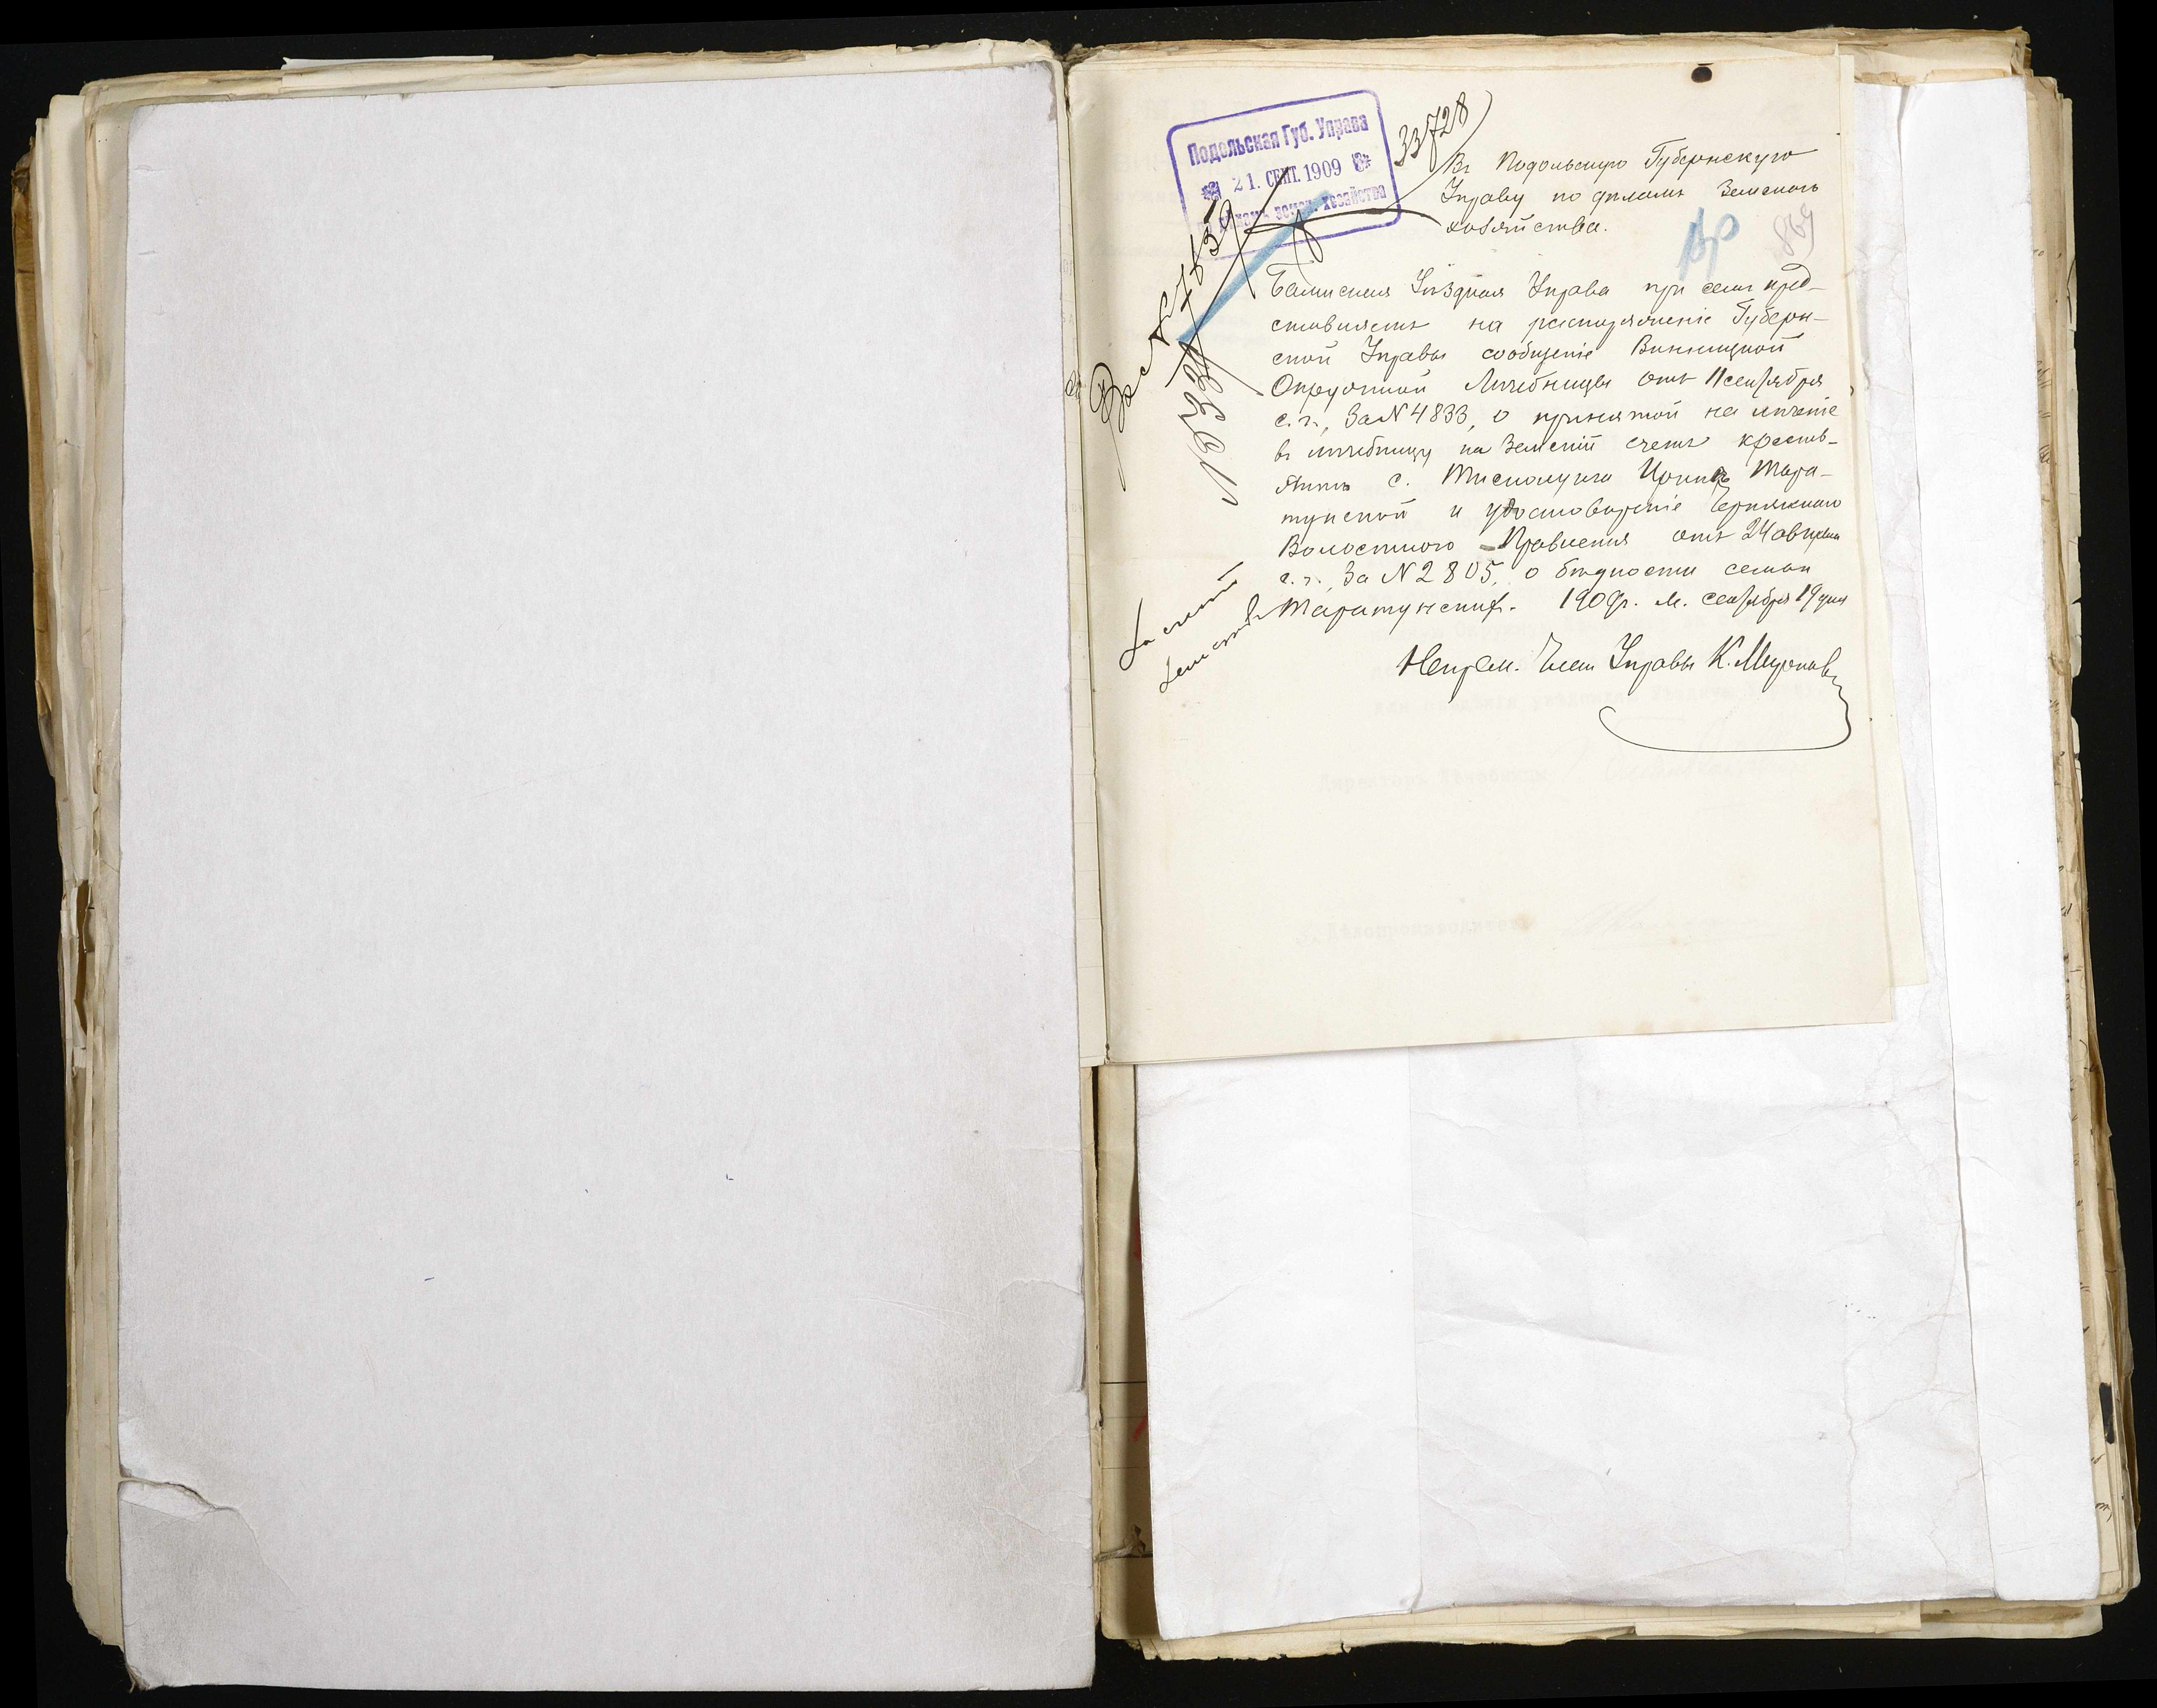 Подольская Губ. Управа
21. СЕНТ. 1909
по дѣламъ земск. хозяйства
33728
Въ Подольскую Губернскую
Управу по дѣламъ Земскаго
хозяйства.
869
Балтская Уѣздная Управа при семъ пред-
ставляетъ на распоряженіе Губерн-
ской Управы сообщеніе Винницкой
Окружной Лѣчебницы отъ 11 сентября
с. г., за № 4833, о принятой на лѣченіе
въ лѣчебницу на Земскій счетъ кресть-
янкѣ с. Тара-
тунской и удостовѣреніе
Волостного Правленія отъ 24 августа
с. г. за № 2805, о бѣдности семьи
Таратунских. 1909 г. м. сентября 19 дня
Непрем. Членъ Управы К.
19332
На счетъ
Земства